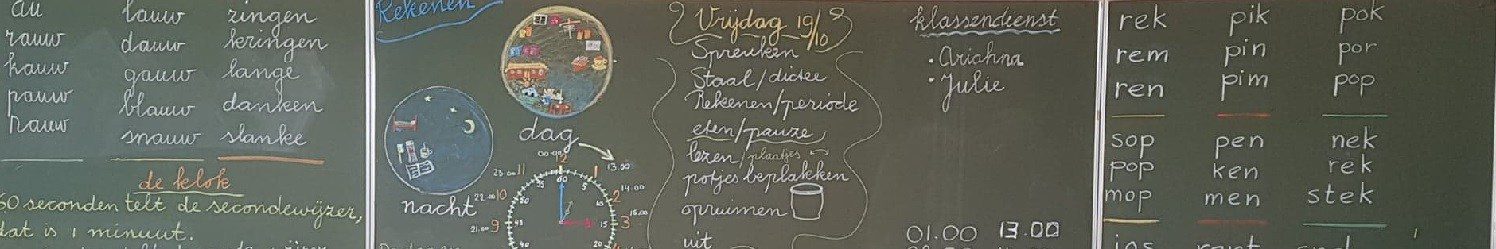 au lauw zingen
rauw dauw kringen
kauw gauw lange
pauw blauw danken
hauw snauw slanke
de klok
60 seconden telt de secondewijzer,
dat is 1 minuut.
Rekenen
dag
nacht
00.00
12
13.00
1
14.00
2
15.00
3
23.00 11
22.00 10
21.00 9
60
5
10
15
20
45
50
55
Vrijdag 19/10
Spreuken
Staal/dictee
Rekenen/periode
eten/pauze
lezen/plaatjes
potjes beplakken
opruimen
uit
klassendienst
· Ariahna
· Julie
01.00 13.00
rek pik pok
rem pin por
ren pim pop
sop pen nek
pop ken rek
mop men stek